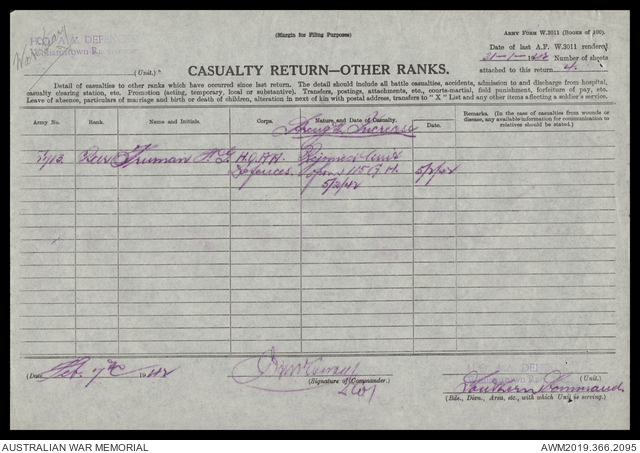 (Margin for Filing Purposes)
ARMY FORM W.3011 (BOOKS OF 100).
Date of last A.F. W.3011 rendered
Number of sheets
attached to this return
(Unit.)
CASUALTY RETURN—OTHER RANKS.
Detail of casualties to other ranks which have occurred since last return. The detail should include all battle casualties, accidents, admission to and discharge from hospital,
casualty clearing station, etc. Promotion (acting, temporary, local or substantive). Transfers, postings, attachments, etc., courts-martial, field punishment, forfeiture of pay, etc.
Leave of absence, particulars of marriage and birth or death of children, alteration in next of kin with postal address, transfers to "X" List and any other items affecting a soldier's service.
Army No.
Rank.
Name and Initials.
Corps.
Nature and Date of Casualty.
Date.
Remarks. (In the case of casualties from wounds or
disease, any available information for communication to
relatives should be stated.)
Strength Increase
Truman
Rejoined unit
Defences
from 115 G.H.
5/2/42
5/2/42
(Date) Feb. 7th 1942
(Signature of Commander.)
(Unit.)
Southern Command
(Bde., Divn., Area, etc., with which Unit is serving.)
AUSTRALIAN WAR MEMORIAL
AWM2019.366.2095